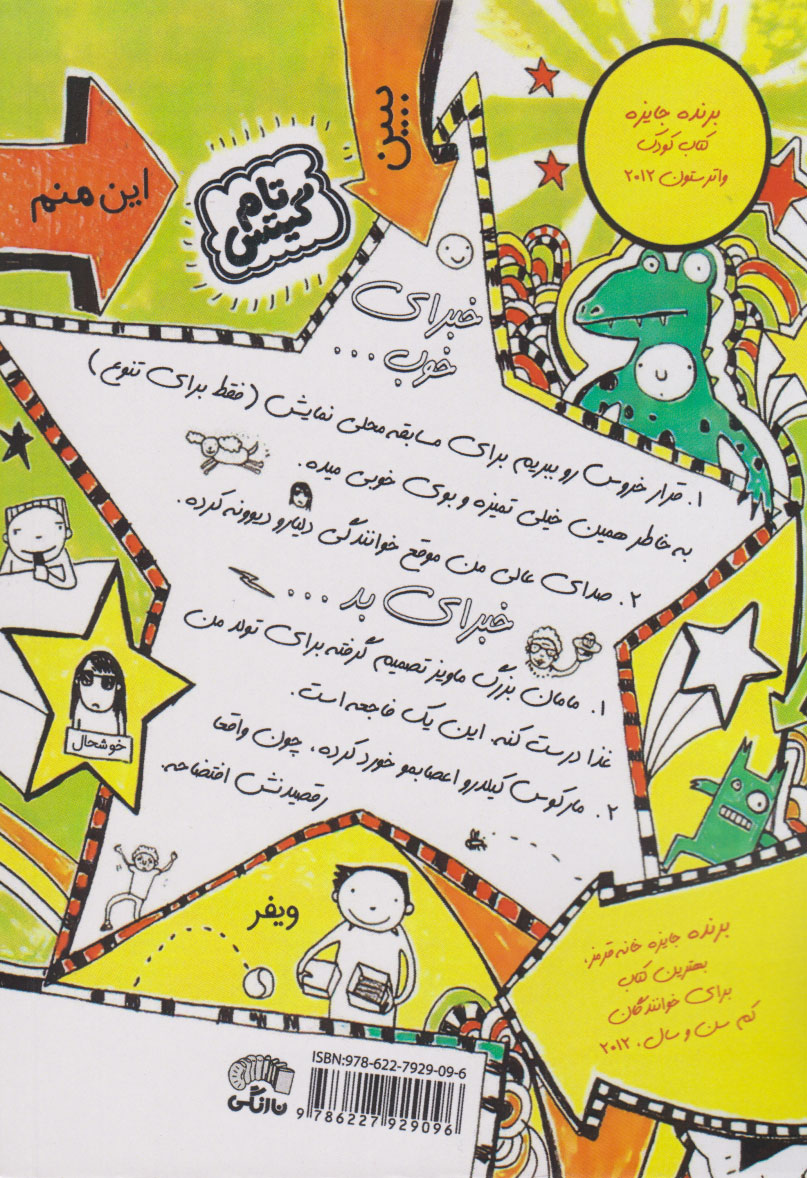 برنده جایزه
کتاب کودک
واترستون ۲۰۱۲
ببین...
این منم
تام
گیتس
خبرای
خوب...
۱. قرار خروس رو ببریم برای مسابقه محلی نمایش (فقط برای تنوع)
به خاطر همین خیلی تمیزه و بوی خوبی میده.
۲. صدای عالی من موقع خوانندگی دلیلارو دیوونه کرده.
خبرای بد...
۱. مامان بزرگ ماویز تصمیم گرفته برای تولد من
غذا درست کنه. این یک فاجعه است.
۲. مارکوس کیلدرو اعصابمو خورد کرده، چون واقعا
رقصیدنش افتضاحه.
خوشحال
ویفر
برنده جایزه خانه قرمز،
بهترین کتاب
برای خوانندگان
کم سن و سال، ۲۰۱۲
نارنگی
ISBN:978-622-7929-09-6
9 786227 929096